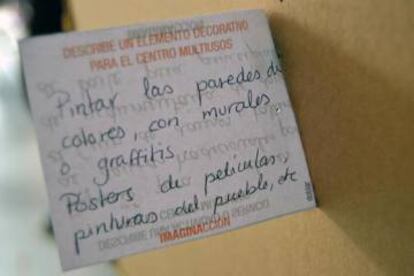 DESCRIBE UN ELEMENTO DECORATIVO
PARA EL CENTRO MULTIUSOS
Pintar las paredes de
colores, con murales
o graffitis
Pósters de películas,
pinturas del pueblo, etc
IMAGINACCIÓN